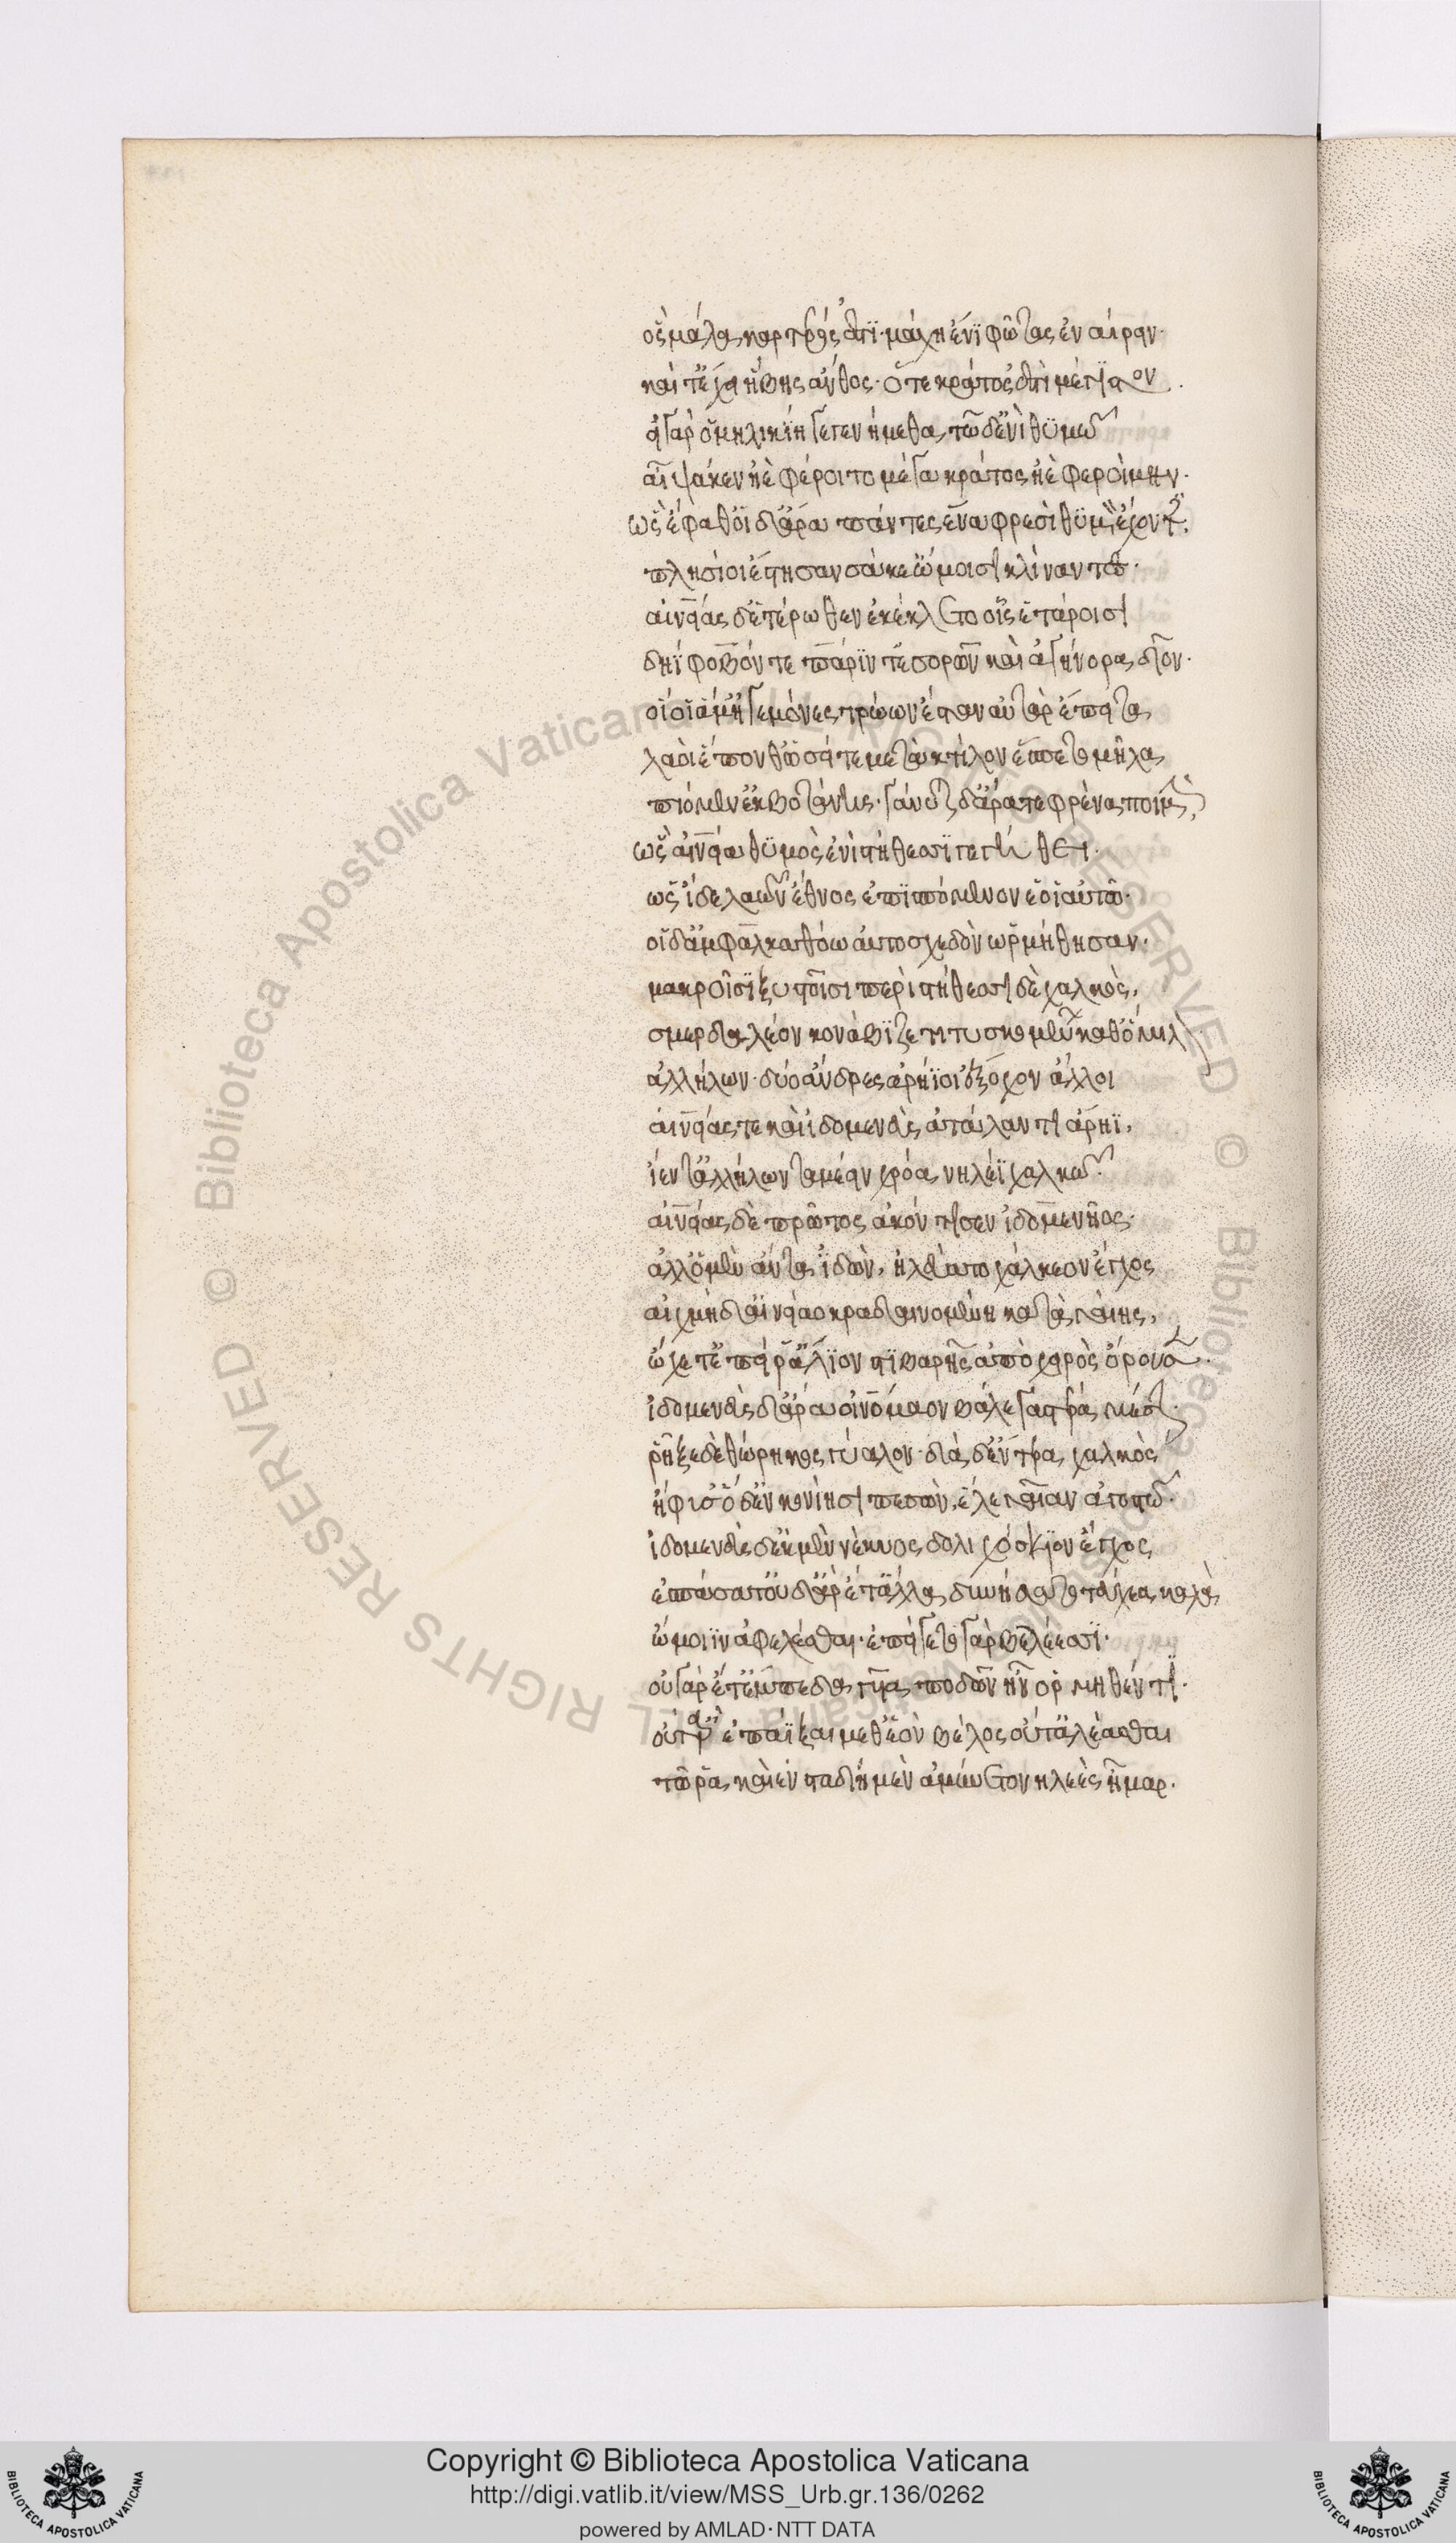 ὃς μάλα καρτερός ἐστι μάχῃ ἔνι φῶτας ἐναίρειν·
καὶ δ' ἔχει ἥβης ἄνθος· ὅ τε κράτος ἐστὶ μέγιστον.
εἰ γὰρ ὁμηλικίη γε γενήμεθα τῶδ' ἐνὶ θυμῶ
αἶψά κεν ἠὲ φέροιτο μέγα κράτος ἠὲ φεροίμην·
ὣς ἔφαθ' οἱ δ' ἄρα πάντες ἕνα φρεσὶ θυμὸν ἔχοντες
πλησίοι ἔστησαν σάκε' ὤμοισι κλίναντες·
αἰνείας δ' ἑτέρωθεν ἐκέκλετο οἷς ἑτάροισι
δηΐφοβόν τε πάριν τ' ἐσορῶν καὶ ἀγήνορα δῖον·
οἵ οἱ ἅμ' ἡγεμόνες τρώων ἔσαν αὐτὰρ ἔπειτα
λαοὶ ἕπονθ' ὡσεί τε μετὰ κτίλον ἕσπετο μῆλα
πιόμεν' ἐκ βοτάνης· γάνυται δ' ἄρα τε φρένα ποιμὴν,
ὣς αἰνεία θυμὸς ἐνὶ στήθεσι γεγήθει·
ὡς ἴδε λαῶν ἔθνος ἐπισπόμενον ἑοῖ αὐτῶ·
οἱ δ' ἀμφ' ἀλκαθόω αὐτοσχεδὸν ὡρμήθησαν·
μακροῖσι ξυστοῖσι περὶ στήθεσι δὲ χαλκὸς,
σμερδαλέον κονάβιζε τιτυσκομένων καθ' ὅμιλον
ἀλλήλων· δύο ἄνδρες ἀρήϊοι ἔξοχον ἄλλων
αἰνείας τε καὶ ἰδομενεὺς ἀτάλαντοι ἄρηϊ,
ἵεντ' ἀλλήλων ταμέειν χρόα νηλέϊ χαλκῶ·
αἰνείας δὲ πρῶτος ἀκόντισεν ἰδομενῆος·
ἀλλ' ὁ μὲν ἄντα ἰδὼν, ἠλεύατο χάλκεον ἔγχος
αἰχμὴ δ' αἰνείαο κραδαινομένη κατὰ γαίης,
ᾤχετ' ἐπεί ῥ' ἅλιον στιβαρῆς ἀπὸ χειρὸς ὄρουσεν·
ἰδομενεὺς δ' ἄρα οἰνόμαον βάλε γαστέρα μέσην·
ῥῆξε δὲ θώρηκος γύαλον· διὰ δ' ἔντερα χαλκὸς
ἤφυσ' ὁ δ' ἐν κονίησι πεσὼν, ἕλε γαῖαν ἀγοστῶ·
ἰδομενεὺς δ' ἐκ μὲν νέκυος δολιχόσκιον ἔγχος
ἐσπάσατ' οὐδ' ἄρ' ἔτ' ἄλλα δυνήσατο τεύχεα καλὰ
ὤμοιϊν ἀφελέσθαι· ἐπείγετο γὰρ βελέεσσι·
οὐ γὰρ ἔτ' ἔμπεδα γυῖα ποδῶν ἦν ὁρμηθέντι·
οὔτ' ἄρ' ἐπαΐξαι μεθ' ἑὸν βέλος οὔτ' ἀλέασθαι
τῶ ῥα καὶ ἐν σταδίη μὲν ἀμύνετο νηλεὲς ἦμαρ·